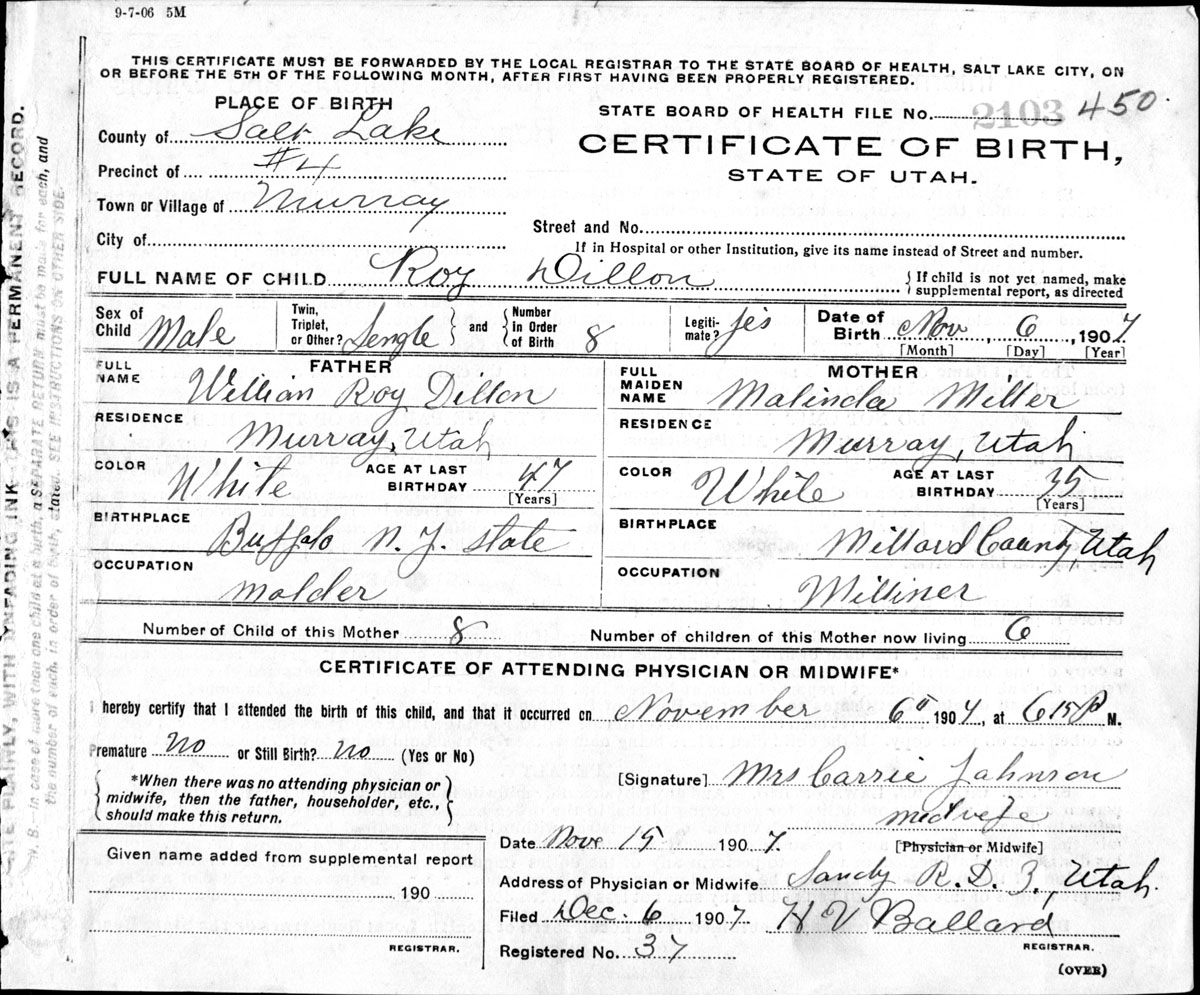 9-7-06 5M
THIS CERTIFICATE MUST BE FORWARDED BY THE LOCAL REGISTRAR TO THE STATE BOARD OF HEALTH, SALT LAKE CITY, ON
OR BEFORE THE 5TH OF THE FOLLOWING MONTH, AFTER FIRST HAVING BEEN PROPERLY REGISTERED.
PLACE OF BIRTH
County of Salt Lake
Precinct of #4
Town or Village of Murray
City of
STATE BOARD OF HEALTH FILE No. 2103 450
CERTIFICATE OF BIRTH,
STATE OF UTAH.
Street and No.
If in Hospital or other Institution, give its name instead of Street and number.
FULL NAME OF CHILD Roy Dillon
{If child is not yet named, make
supplemental report, as directed
Sex of Child Male
Twin, Triplet, or Other? Sengle
and
Number in Order of Birth 8
Legiti-mate? yes
Date of Birth Nov 6, 1907
[Month] [Day] [Year]
FATHER
FULL NAME Willian Roy Dillon
RESIDENCE
Murray, Utah
COLOR White
AGE AT LAST BIRTHDAY 47
[Years]
BIRTHPLACE
Buffalo N.Y. State
OCCUPATION
molder
MOTHER
FULL MAIDEN NAME Malinda Miller
RESIDENCE
Murray, Utah
COLOR White
AGE AT LAST BIRTHDAY 35
[Years]
BIRTHPLACE
Millard County, Utah
OCCUPATION
Milliner
Number of Child of this Mother 8
Number of children of this Mother now living 6
CERTIFICATE OF ATTENDING PHYSICIAN OR MIDWIFE*
I hereby certify that I attended the birth of this child, and that it occurred on November 6 1907, at 6 15 P M.
Premature no or Still Birth? no (Yes or No)
*When there was no attending physician or
midwife, then the father, householder, etc.,
should make this return.
[Signature] Mrs Carrie Johnson
midvefe
[Physician or Midwife]
Date Nov 15 1907.
Address of Physician or Midwife Sandy R.D. 3, Utah.
Filed Dec. 6 1907. H V Ballard
REGISTRAR.
Registered No. 37
(OVER)
Given name added from supplemental report
190
REGISTRAR.
PLAINLY, WITH UNFADING INK THIS IS A PERMANENT RECORD.
N. B.—In case of more than one child at a birth, a SEPARATE RETURN must be made for each, and
the number of each, in order of birth, stated. SEE INSTRUCTIONS ON OTHER SIDE.